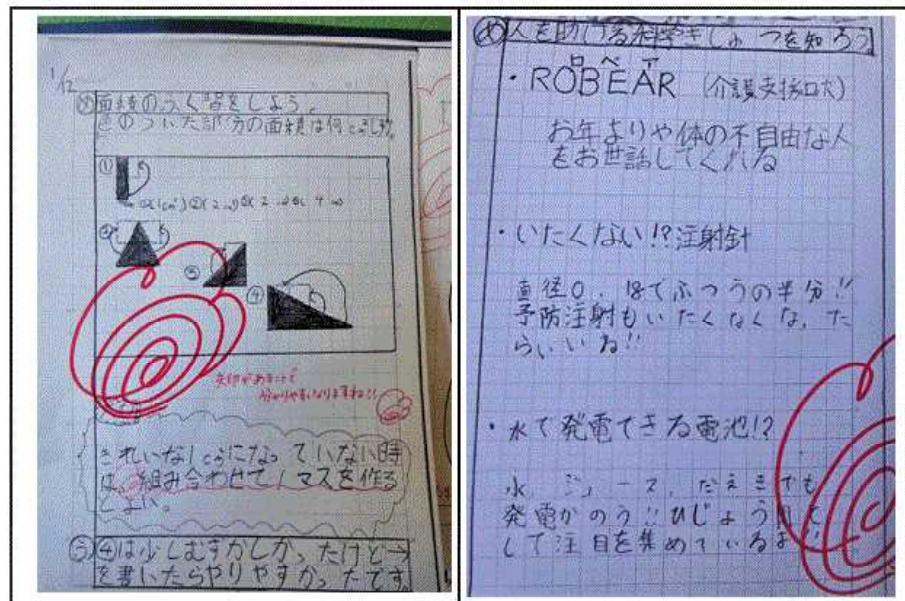 1/12
め 面積のふく習をしよう。
色のついた部分の面積は何
①
②
③
④
矢印があることで
分かりやすくなりますね!!
きれいな
になっていない時
は、組み合わせて1マスを作る
とよい。
④は少しむずかしかったけど→
を書いたらやりやすかったです。
め 人を助ける科学きじゅつを知ろう
ロベア
・ROBEAR (介護支援ロボ)
お年よりや体の不自由な人
をお世話してくれる
・いたくない!?注射針
直径0.18でふつうの半分!!
予防注射もいたくなくなったら
らいいね!!
・水で発電できる電池!?
水、ジュース、だえきでも
発電かのう!!ひじょう用と
して注目を集めているよ!!